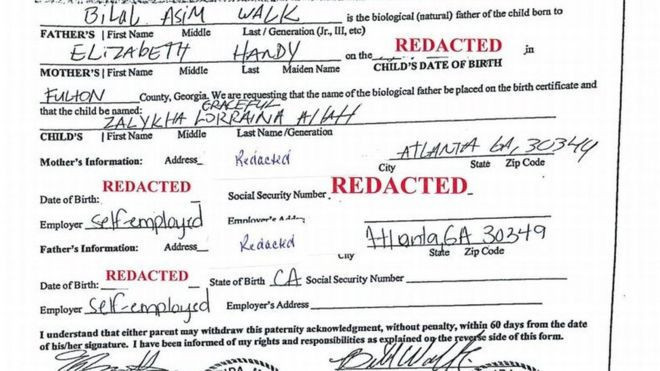 Bilal Asim WALK is the biological (natural) father of the child born to
FATHER'S | First Name Middle Last / Generation (Jr., III, etc)
ELIZABETH HANDY on the REDACTED in
MOTHER'S | First Name Middle Last Maiden Name CHILD'S DATE OF BIRTH
FULTON County, Georgia. We are requesting that the name of the biological father be placed on the birth certificate and
that the child be named: GRACEFUL
ZALYKHA LORRAINA Allah
CHILD'S | First Name Middle Last Name/Generation
Mother's Information: Address Redacted ATLANTA GA, 30344
City State Zip Code
Date of Birth: REDACTED Social Security Number REDACTED
Employer self-employed Employer's
Father's Information: Address Redacted Atlanta, GA 30349
City State Zip Code
Date of Birth: REDACTED State of Birth CA Social Security Number
Employer self-employed Employer's Address
I understand that either parent may withdraw this paternity acknowledgment, without penalty, within 60 days from the date
of his/her signature. I have been informed of my rights and responsibilities as explained on the reverse side of this form.